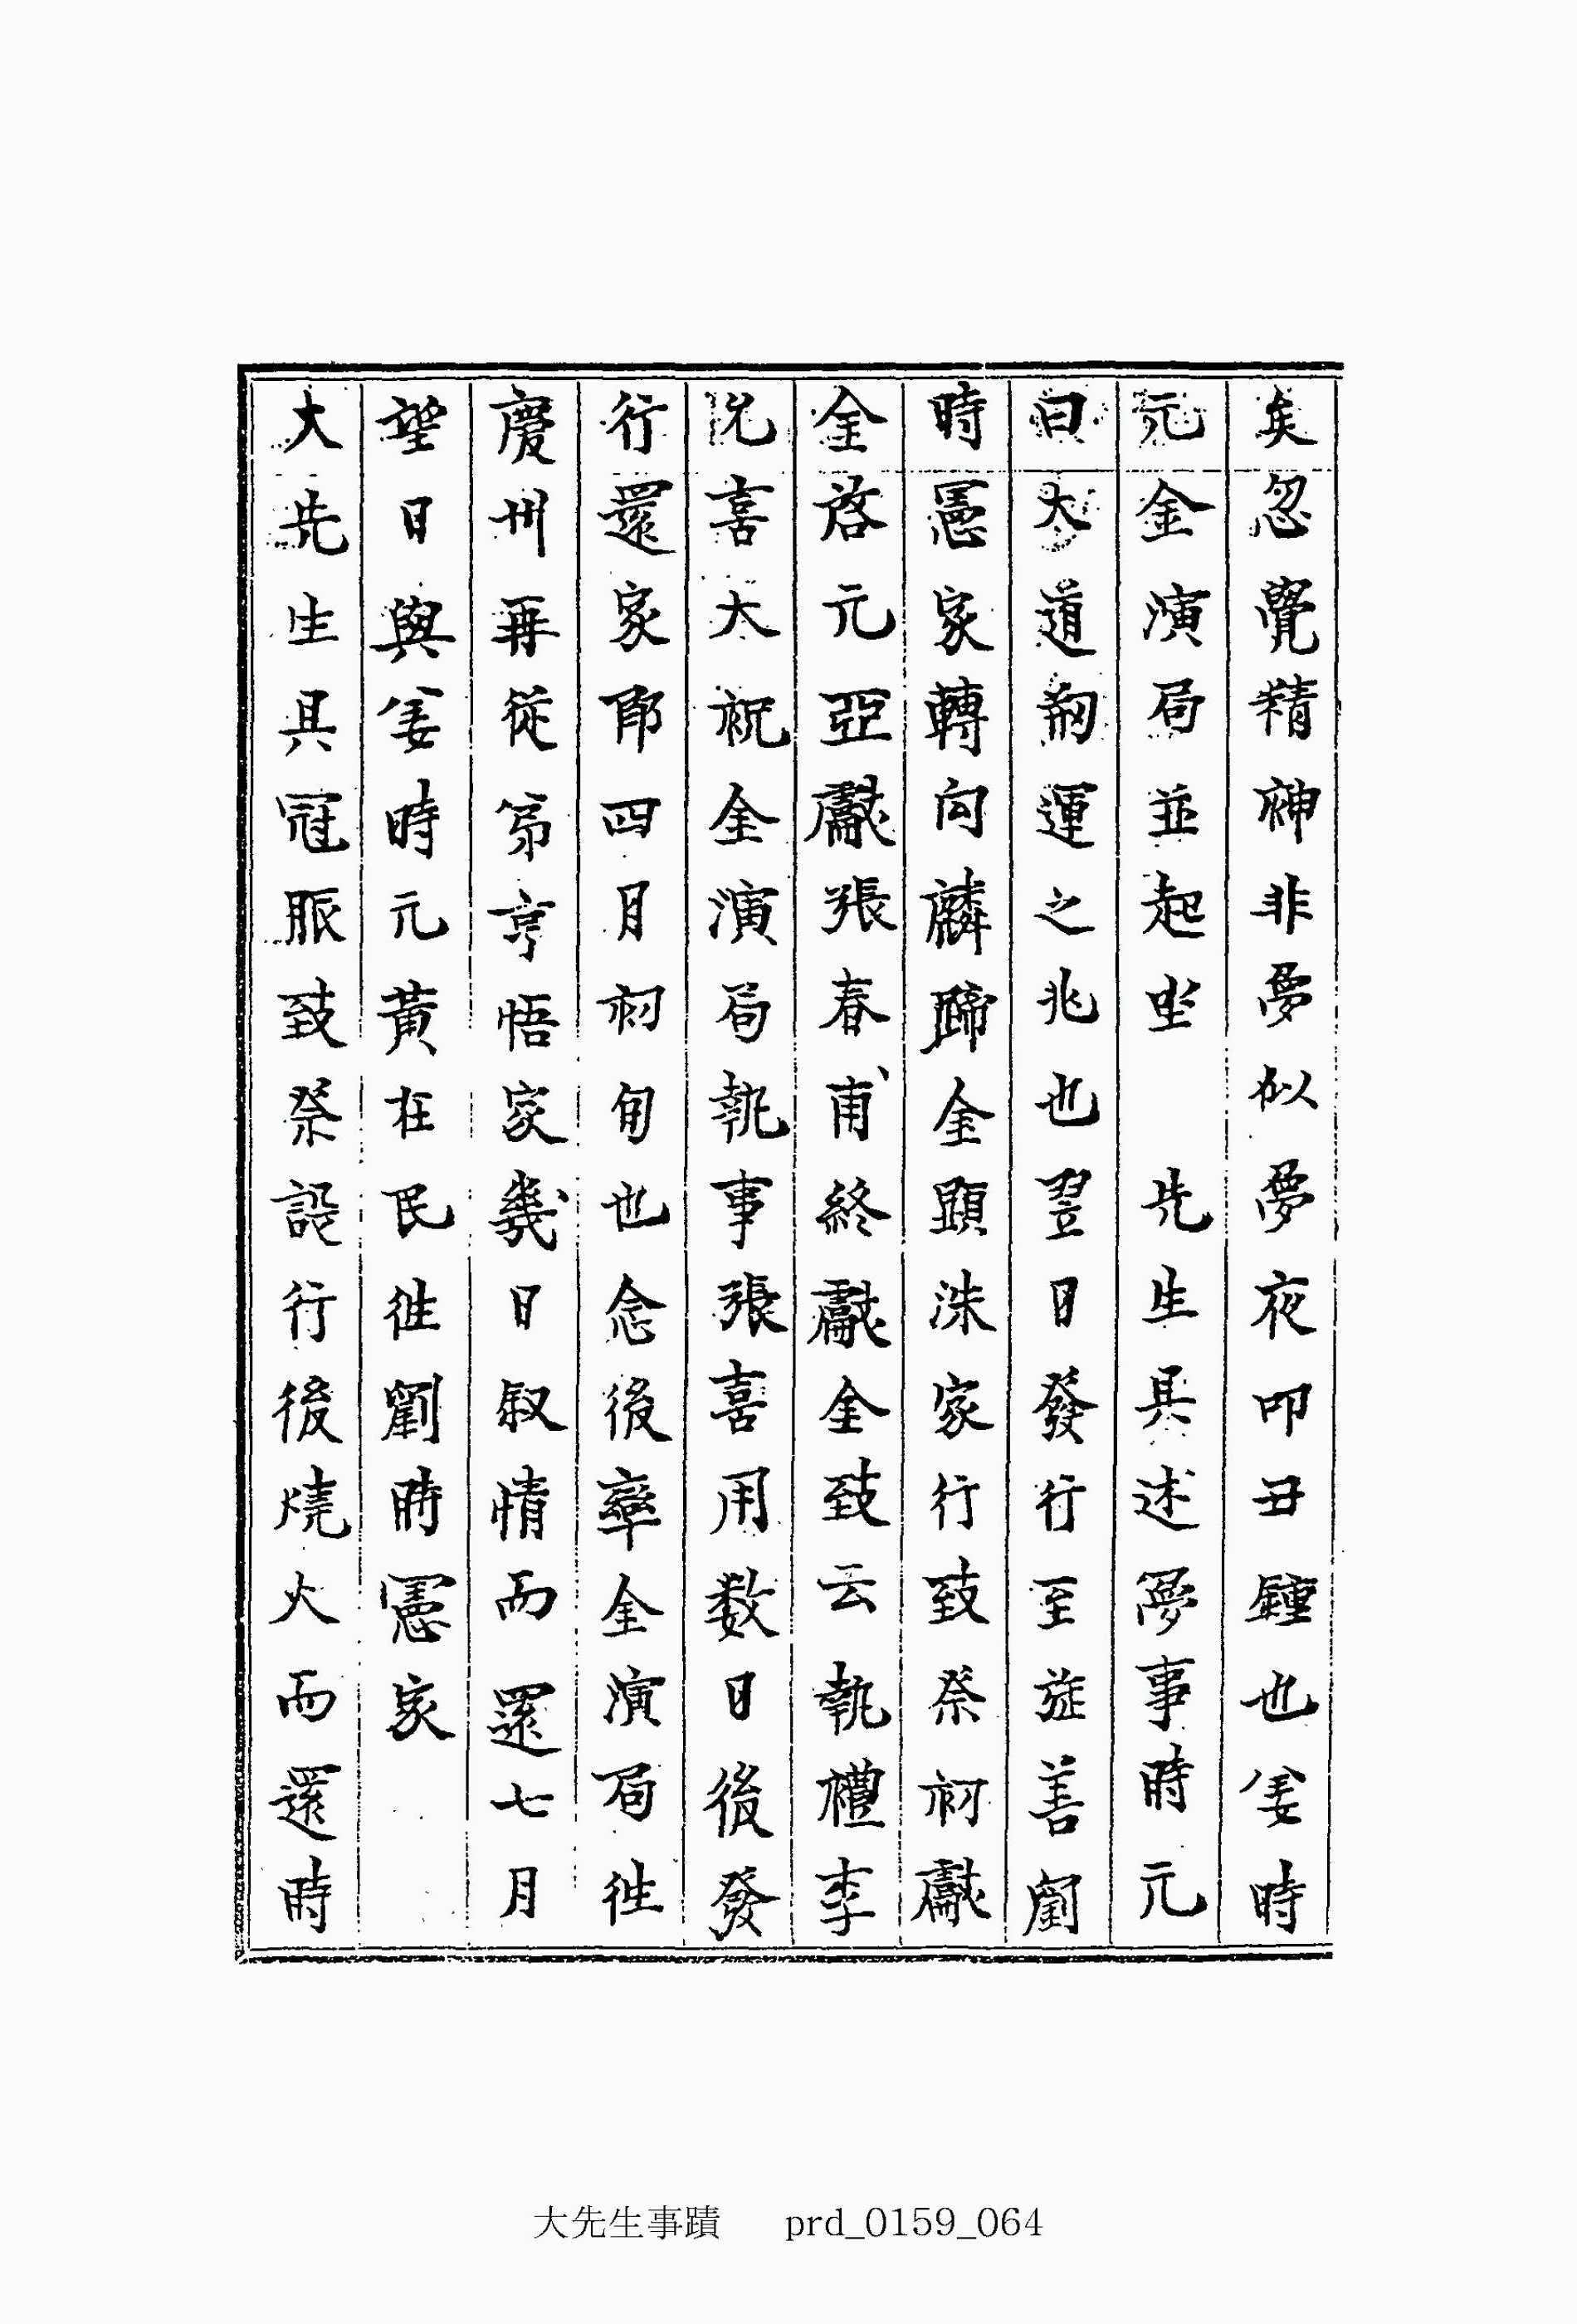 矣忽覺精神非夢似夢夜叩丑鍾也姜時
元金演局並起坐　先生具述夢事時元
曰大道刱運之兆也翌日發行至旌善劉
時憲家轉向麟蹄金顯洙家行致祭初獻
金啓元亞獻張春甫終獻金致云執禮李
允喜大祝金演局執事張喜用数日後發
行還家卽四月初旬也念後率金演局往
慶州再從弟亨悟家幾日叙情而還七月
望日與姜時元黃在民往劉時憲家
大先生具冠服致祭設行後燒火而還時
大先生事蹟　prd_0159_064